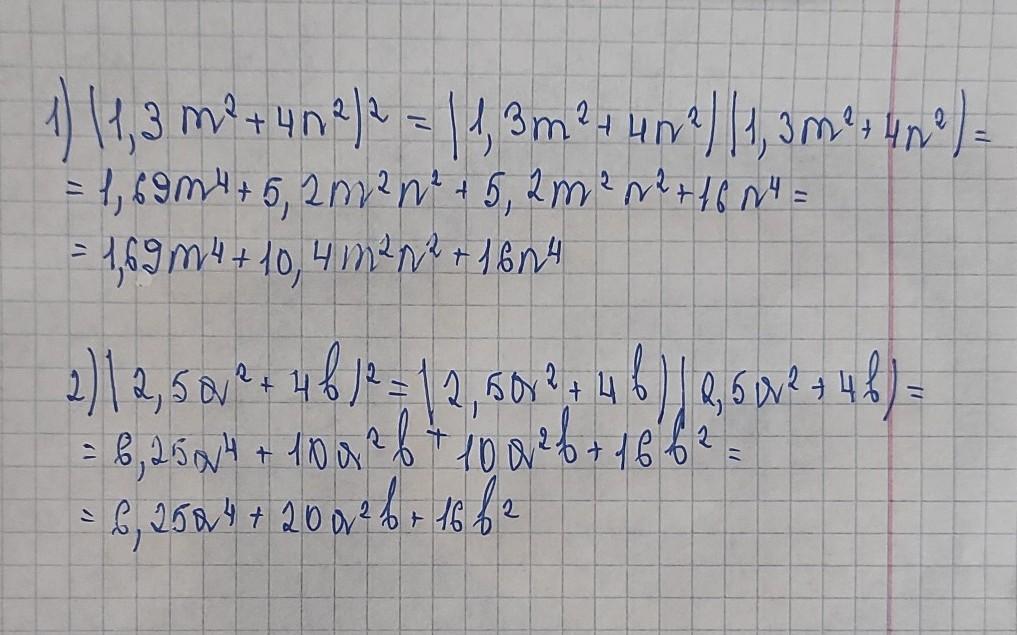 1) (1,3m²+4n²)² = (1,3m²+4n²)(1,3m²+4n²) =
= 1,69m⁴+5,2m²n²+5,2m²n²+16n⁴ =
= 1,69m⁴+10,4m²n²+16n⁴
2) (2,5a²+4b)² = (2,5a²+4b)(2,5a²+4b) =
= 6,25a⁴+10a²b+10a²b+16b² =
= 6,25a⁴+20a²b+16b²